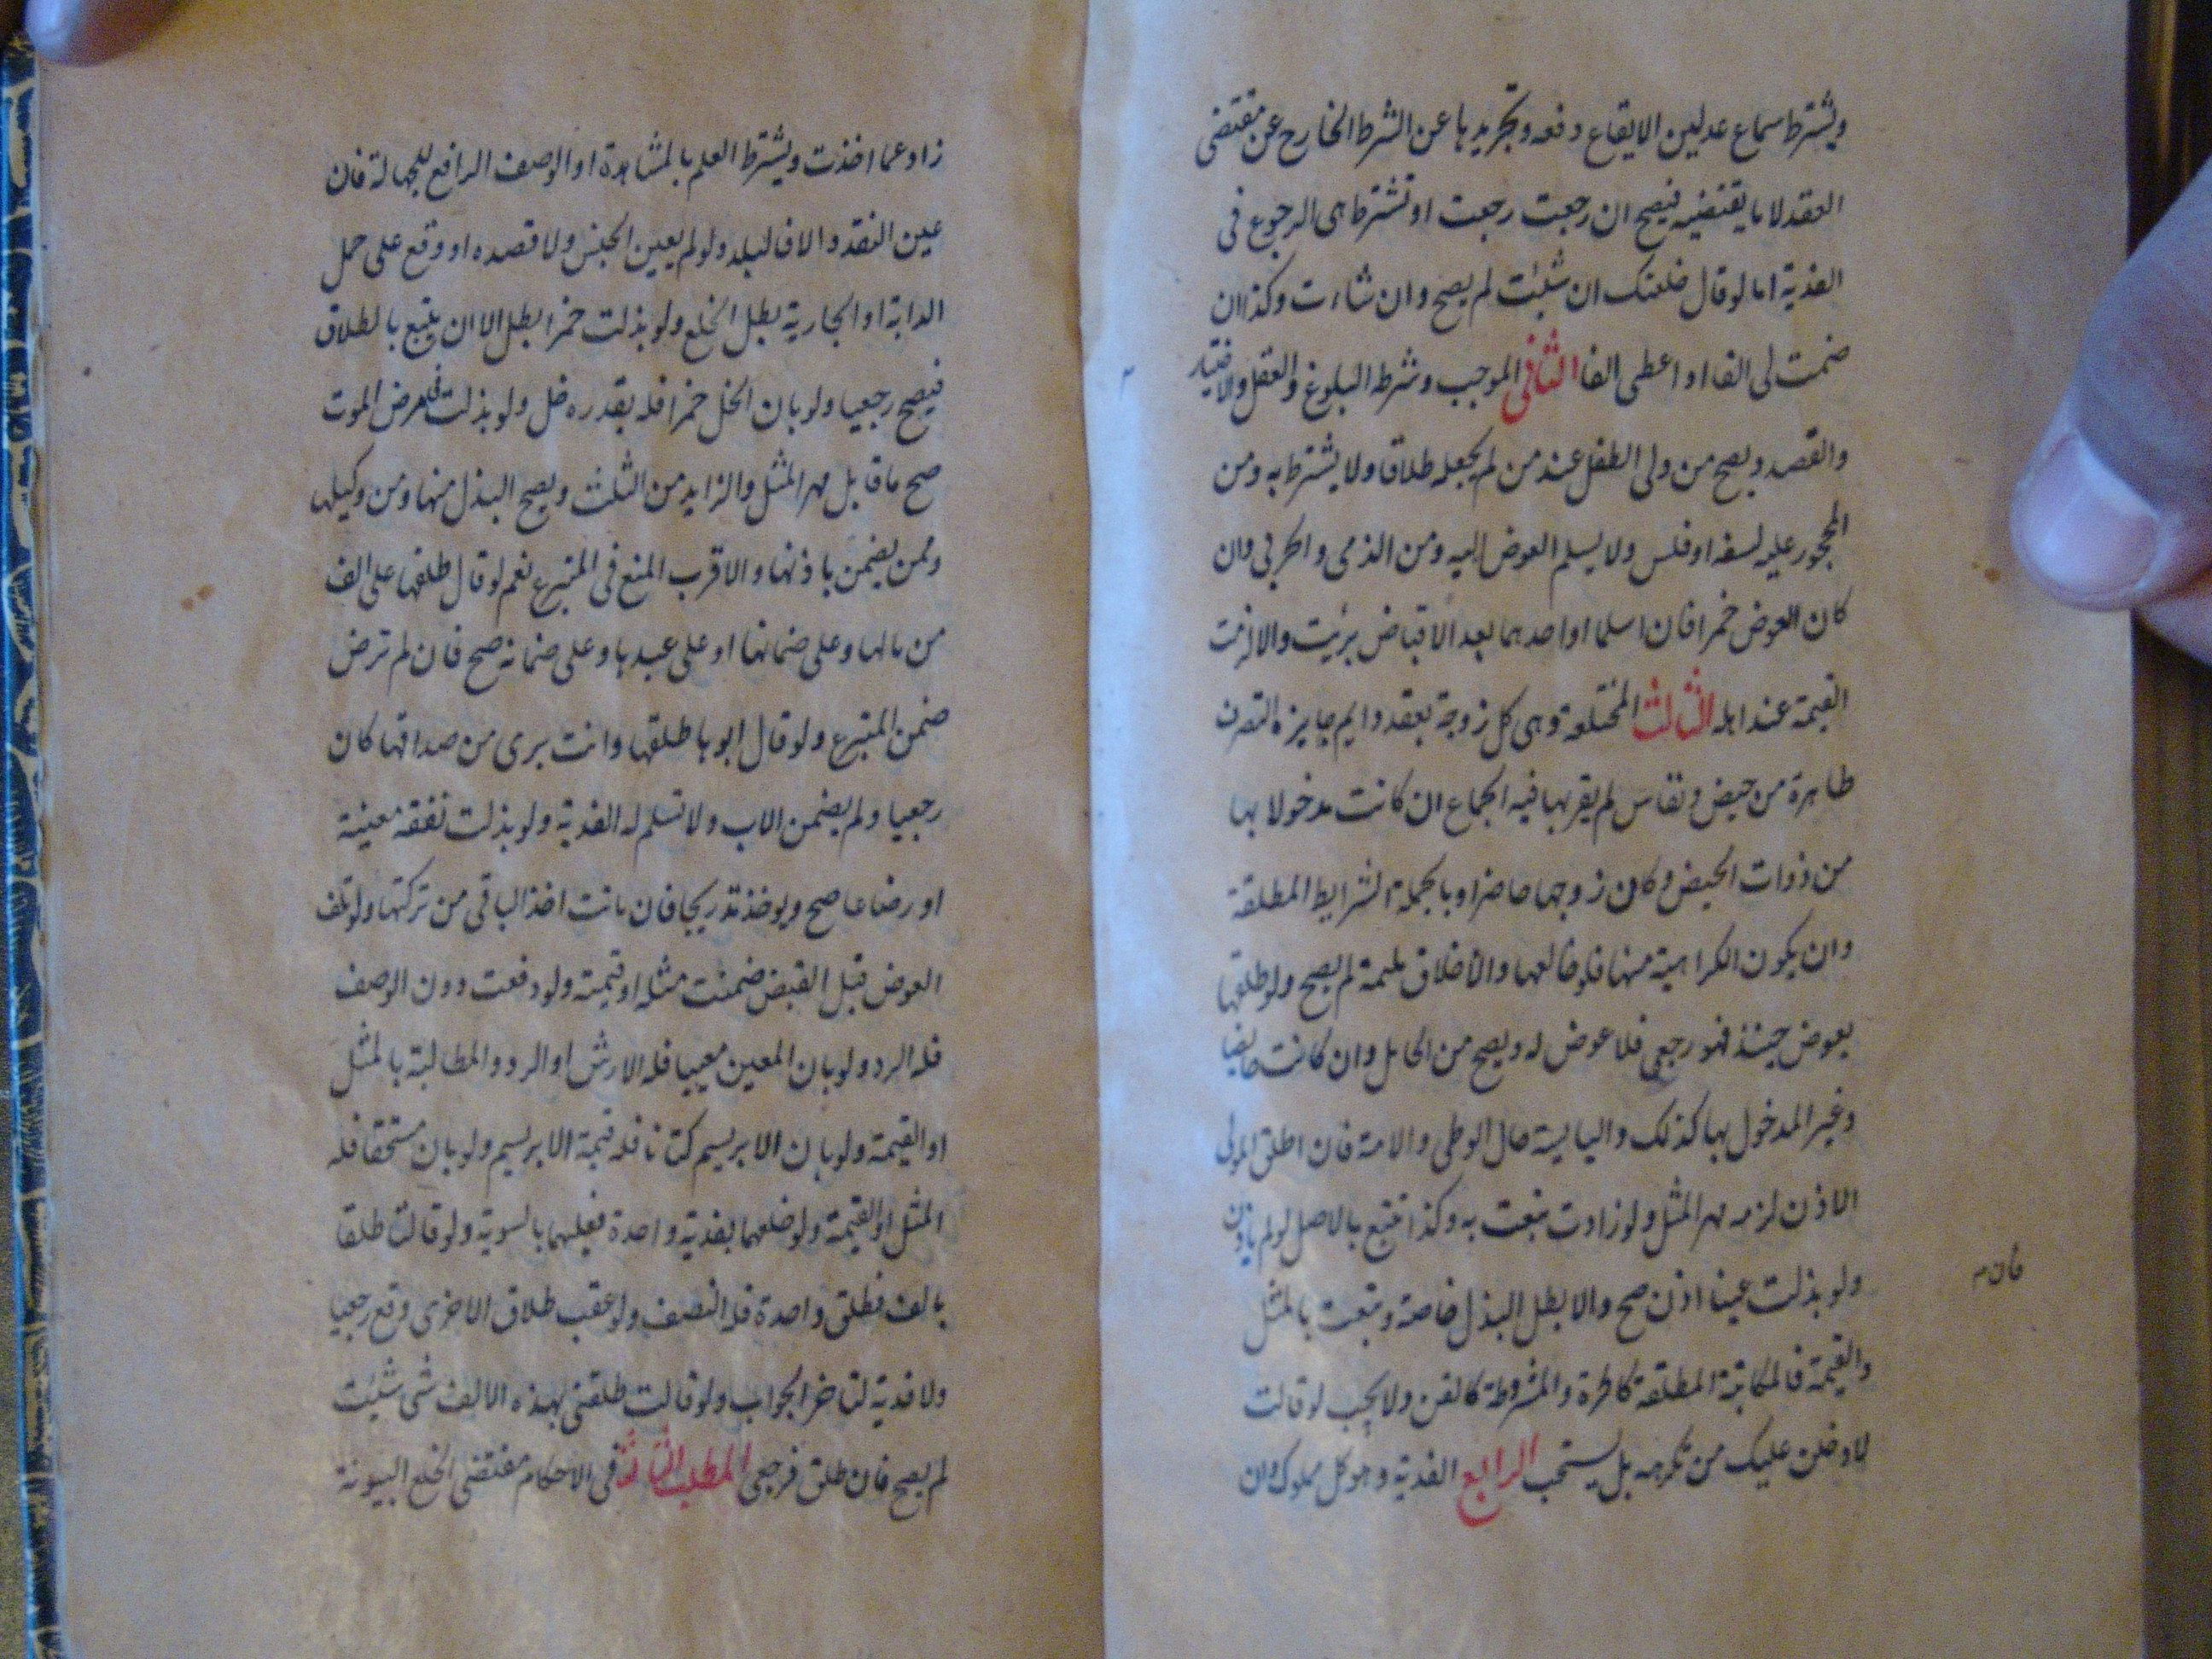 ويشترط سماع عدلين الايقاع دفعه وتجريدها عن الشرط الخارج عن مقتضى
العقد لا ما يقتضيه فيصح ان رجعت رجعت او تشترط هى الرجوع فى
الفدية اما لو قال خلعتك ان شئت لم يصح وان شاءت وكذا ان
ضمنت لى الفا او اعطى الفا الثانى الموجب وشرط البلوغ والعقل والاختيار
والقصد ويصح من ولى الطفل عند من لم يجعله طلاقا ولا يشترط به ومن
المحجور عليه لسفه او فلس ولا يسلم العوض اليه ومن الذمى والحربى وان
كان العوض خمرا فان اسلما او احدهما بعد الاقباض برئت والا لزمت
القيمة عند اهله الثالث المختلعة وهى كل زوجة بعقد دايم جايزة التصرف
طاهرة من حيض ونفاس لم يقربها فيه الجماع ان كانت مدخولا بها
من ذوات الحيض وكان زوجها حاضرا وبالجملة الشرايط المطلقة
وان يكون الكراهية منها فلو خالعها والاخلاق ملتئمة لم يصح ولو طلقها
بعوض حينئذ فهو رجعى فلا عوض له ويصح من الحامل وان كانت حايضا
وغير المدخول بها كذلك واليايسة حال الوطى والامة فان اطلق المولى
الاذن لزمه مهر المثل ولو زادت تبعت به وكذا تتبع بالاصل لو لم ياذن
ولو بذلت عينا اذن صح والا بطل البذل خاصة وتبعت بالمثل
فان
والقيمة فالمكاتبة المطلقة كالحرة والمشروطة كالقن ولا يجب لو قالت
لادخلن عليك من تكرهه بل يستحب الرابع الفدية وهو كل مملوك وان
زاد عما اخذت ويشترط العلم بالمشاهدة او الوصف الرافع للجهالة فان
عين النقد والا فالبلد ولو لم يعين الجنس ولا قصده او وقع على حمل
الدابة او الجارية بطل الخلع ولو بذلت خمرا بطل الا ان يتبع بالطلاق
فيصح رجعيا ولو بان الخل خمرا فله بقدره خل ولو بذلت فى مرض الموت
صح ما قابل مهر المثل والزايد من الثلث ويصح البذل منها ومن وكيلها
وممن يضمن باذنها والاقرب المنع فى المتبرع نعم لو قال طلقها على الف
من مالها وعلى ضمانها او على عبدها وعلى ضمانه صح فان لم ترض
ضمن المتبرع ولو قال ابوها طلقها وانت برى من صداقها كان
رجعيا ولم يضمن الاب ولا تسلم له الفدية ولو بذلت نفقة معينة
او رضاعا صح ويوخذ تدريجا فان ماتت اخذ الباقى من تركتها ولو تلف
العوض قبل القبض ضمنت مثله او قيمته ولو دفعت دون الوصف
فله الرد ولو بان المعين معيبا فله الارش او الرد والمطالبة بالمثل
او القيمة ولو بان الابريسم كتانا فله قيمة الابريسم ولو بان مستحقا فله
المثل او القيمة ولو خلعهما بفدية واحدة فعليهما بالسوية ولو قالتا طلقنا
بالف فطلق واحدة فله النصف ولو عقب طلاق الاخرى وقع رجعيا
ولا فدية لتاخر الجواب ولو قالت طلقنى بهذه الالف متى شئت
لم يصح فان طلق فرجعى المطلب الثانى فى الاحكام مقتضى الخلع البينونة